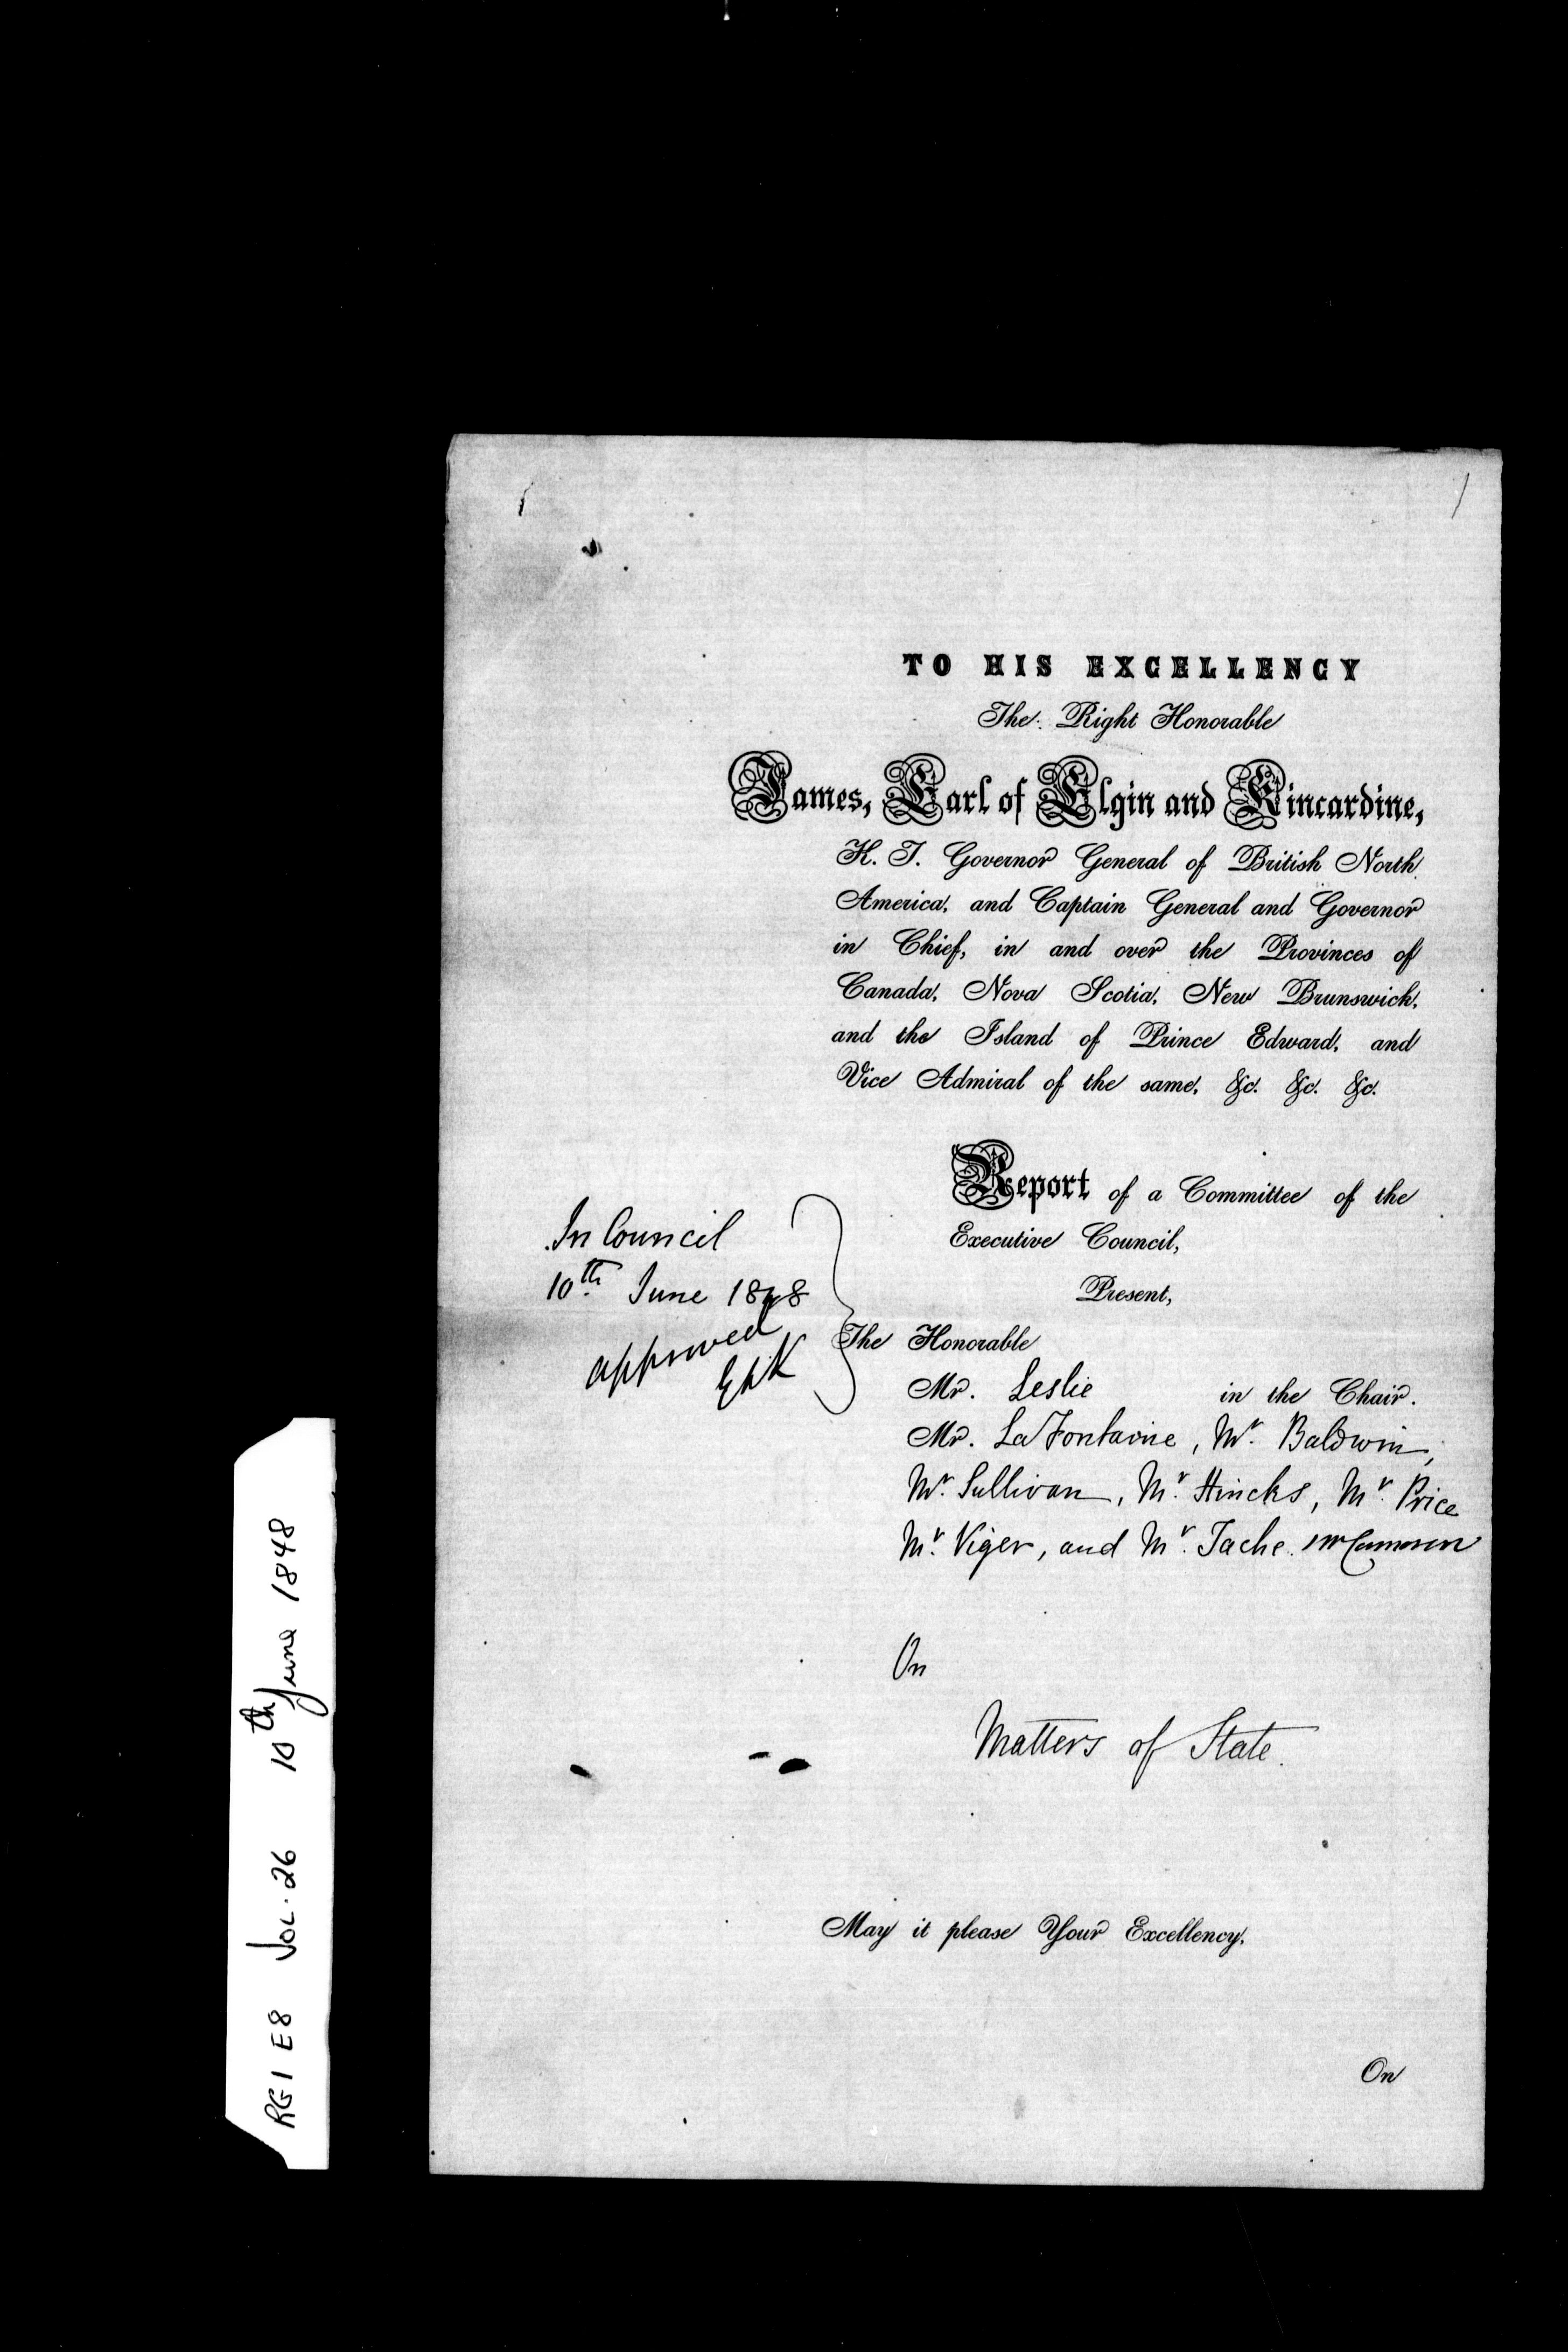 TO HIS EXCELLENCY
The Right Honorable
James, Earl of Elgin and Kincardine,
K. T. Governor General of British North
America, and Captain General and Governor
in Chief, in and over the Provinces of
Canada, Nova Scotia, New Brunswick,
and the Island of Prince Edward, and
Vice Admiral of the same, &c. &c. &c.
Report of a Committee of the
Executive Council,
Present,
In Council
10th June 1848
approved
E&K
The Honorable
Mr. Leslie in the Chair.
Mr. LaFontaine, Mr. Baldwin,
Mr. Sullivan, Mr. Hincks, Mr. Price
Mr. Viger, and Mr. Tache. Mr Cameron
On
Matters of State.
May it please Your Excellency,
On
RG1 E8 VOL. 26 10th June 1848